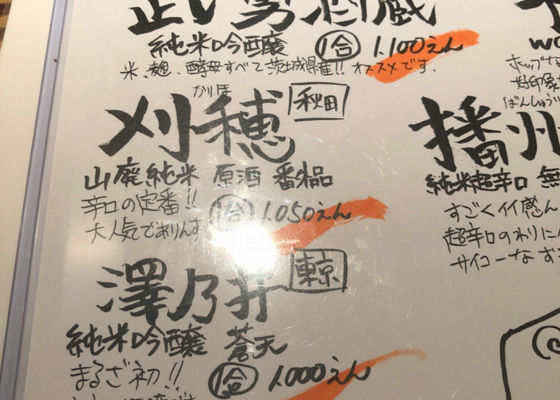 純米吟醸 1合 1.100えん
米、麹、酵母すべて茨城県産!! オススメです.
かりほ
刈穂 秋田
山廃純米 原酒 番外品
辛口の定番!!
1合 1.050えん
大人気でありんす
澤乃井 東京
純米吟醸 蒼天
まるざ初!!
1合 1.000えん
ばんしゅう
播州
純米超辛口 無
すごくイイ感ん
超辛口のわりに
サイコーなお